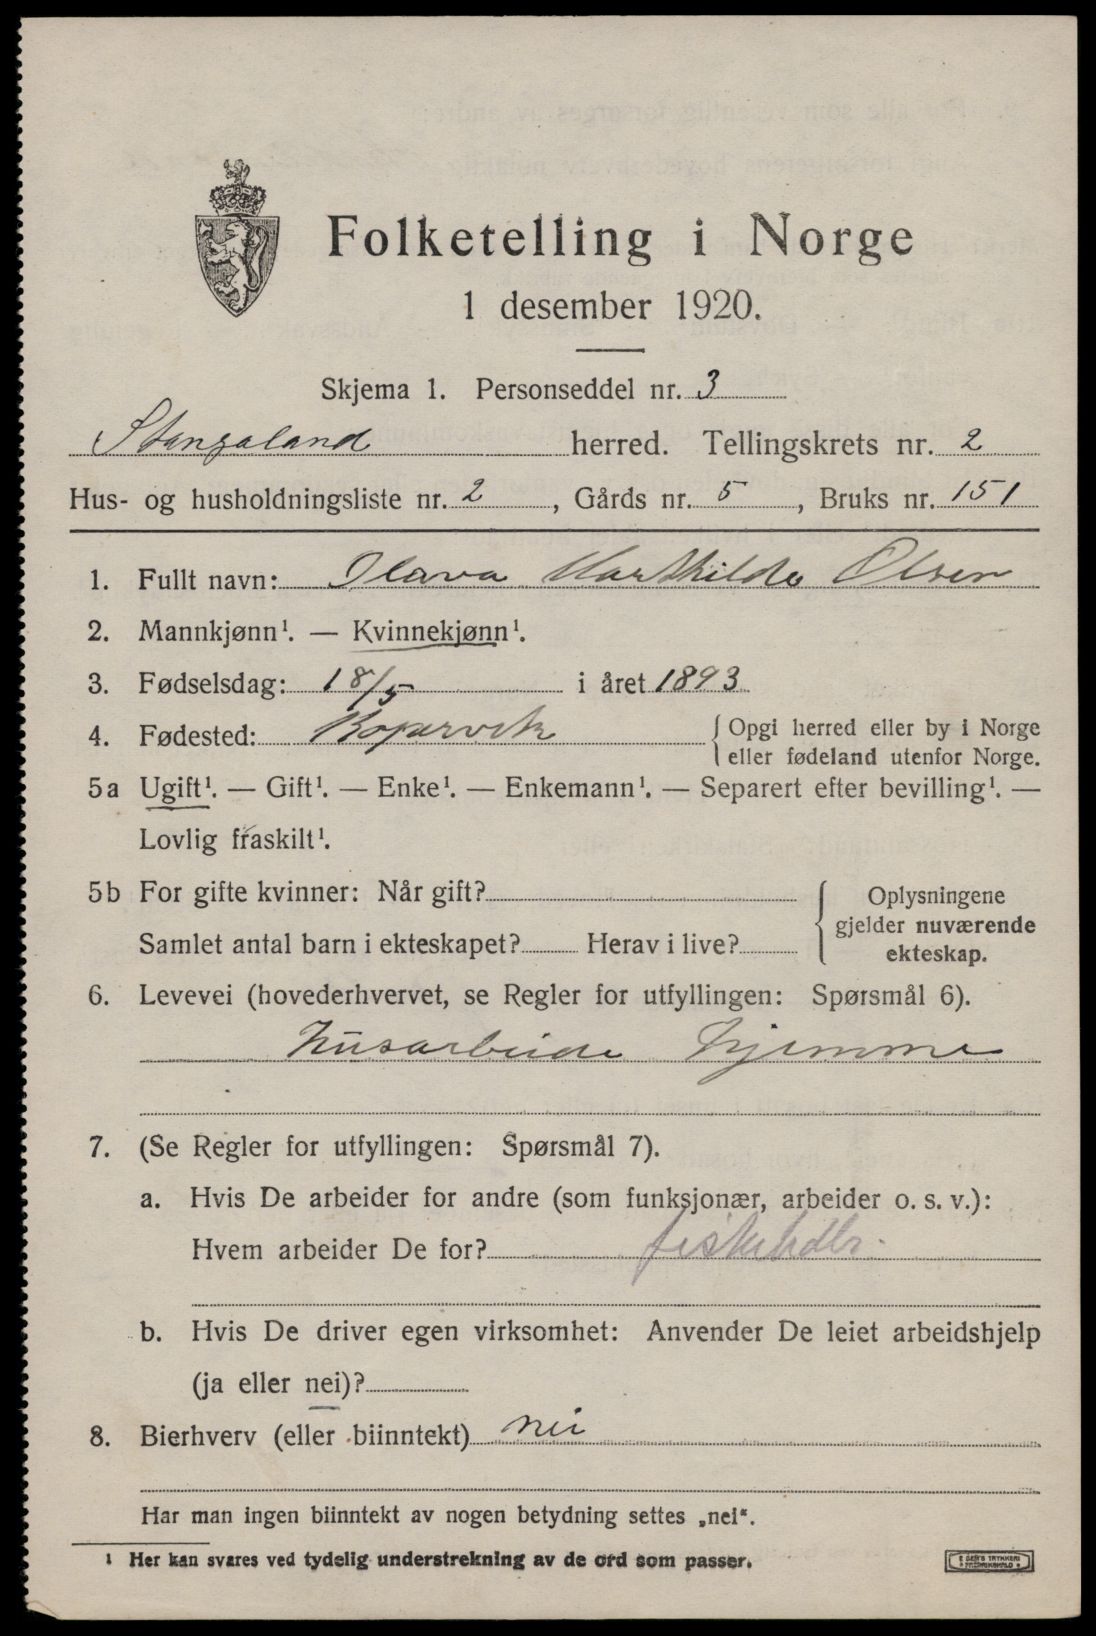 Folketelling i Norge
1 desember 1920.
Skjema 1. Personseddel nr. 3
Stangaland herred. Tellingskrets nr. 2
Hus- og husholdningsliste nr. 2, Gårds nr. 5, Bruks nr. 151
1. Fullt navn: Olava Marthilde Olsen
2. Mannkjønn¹. — Kvinnekjønn¹.
3. Fødselsdag: 18/5 i året 1893
4. Fødested: Kopervik { Opgi herred eller by i Norge
eller fødeland utenfor Norge.
5a Ugift¹. — Gift¹. — Enke¹. — Enkemann¹. — Separert efter bevilling¹. —
Lovlig fraskilt¹.
5b For gifte kvinner: Når gift?
Samlet antal barn i ekteskapet? Herav i live?
{ Oplysningene
gjelder nuværende
ekteskap.
6. Levevei (hovederhvervet, se Regler for utfyllingen: Spørsmål 6).
Husarbeide hjemme
7. (Se Regler for utfyllingen: Spørsmål 7).
a. Hvis De arbeider for andre (som funksjonær, arbeider o. s. v.):
Hvem arbeider De for? fiskehdlr.
b. Hvis De driver egen virksomhet: Anvender De leiet arbeidshjelp
(ja eller nei)?
8. Bierhverv (eller biinntekt) nei
Har man ingen biinntekt av nogen betydning settes „nei“.
¹ Her kan svares ved tydelig understrekning av de ord som passer.